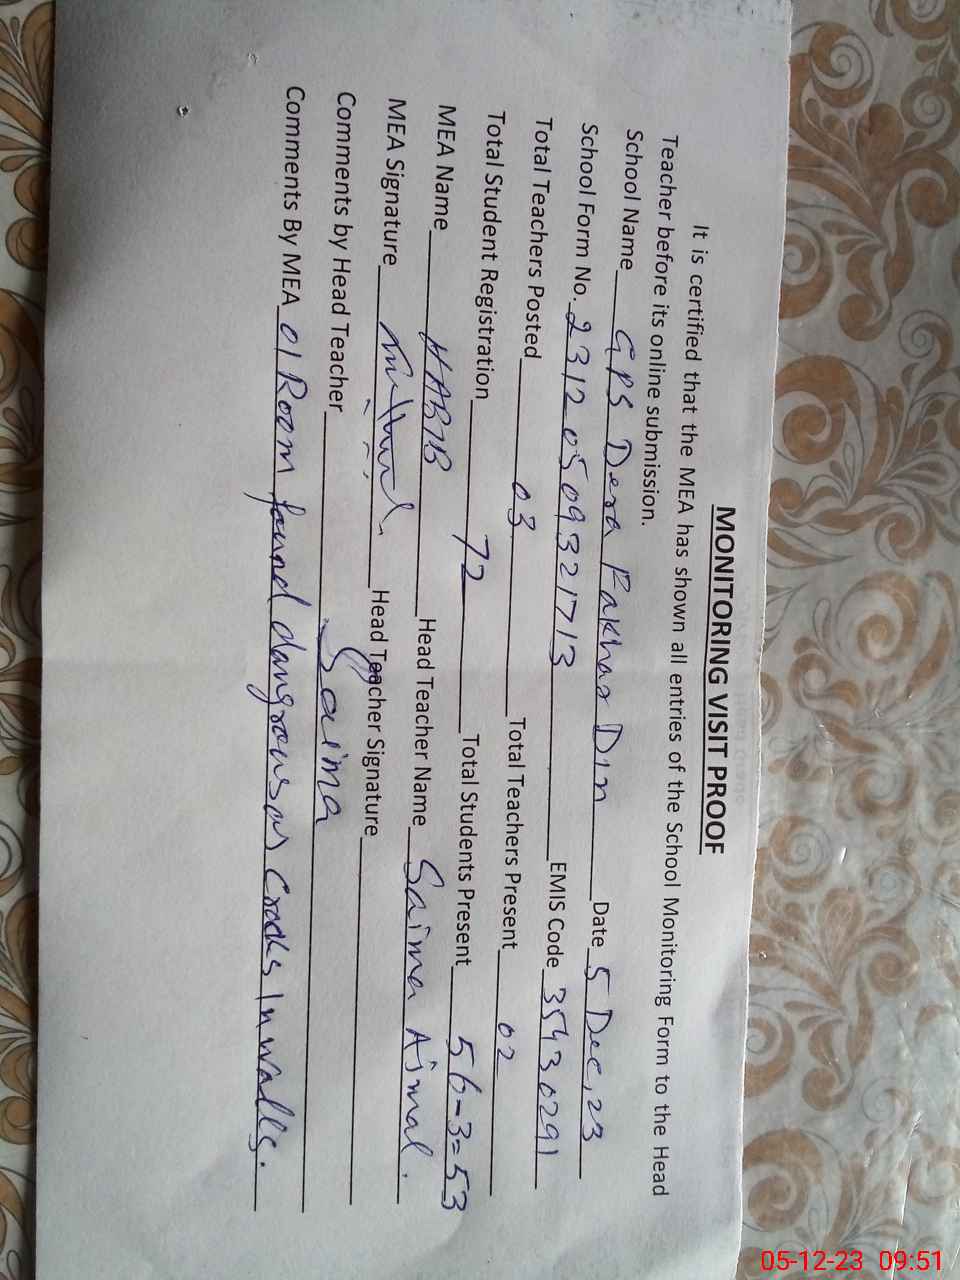 MONITORING VISIT PROOF
It is certified that the MEA has shown all entries of the School Monitoring Form to the Head
Teacher before its online submission.
School Name GPS Dera Fakhar Din Date 5 Dec, 23
School Form No. 23120509321713 EMIS Code 35430291
Total Teachers Posted 03 Total Teachers Present 02
Total Student Registration 72 Total Students Present 56-3=53
MEA Name HABIB Head Teacher Name Saima Ajmal.
MEA Signature Head Teacher Signature
Comments by Head Teacher Saima
Comments By MEA 01 Room found dangrous as Cracks In walls.
05-12-23 09:51